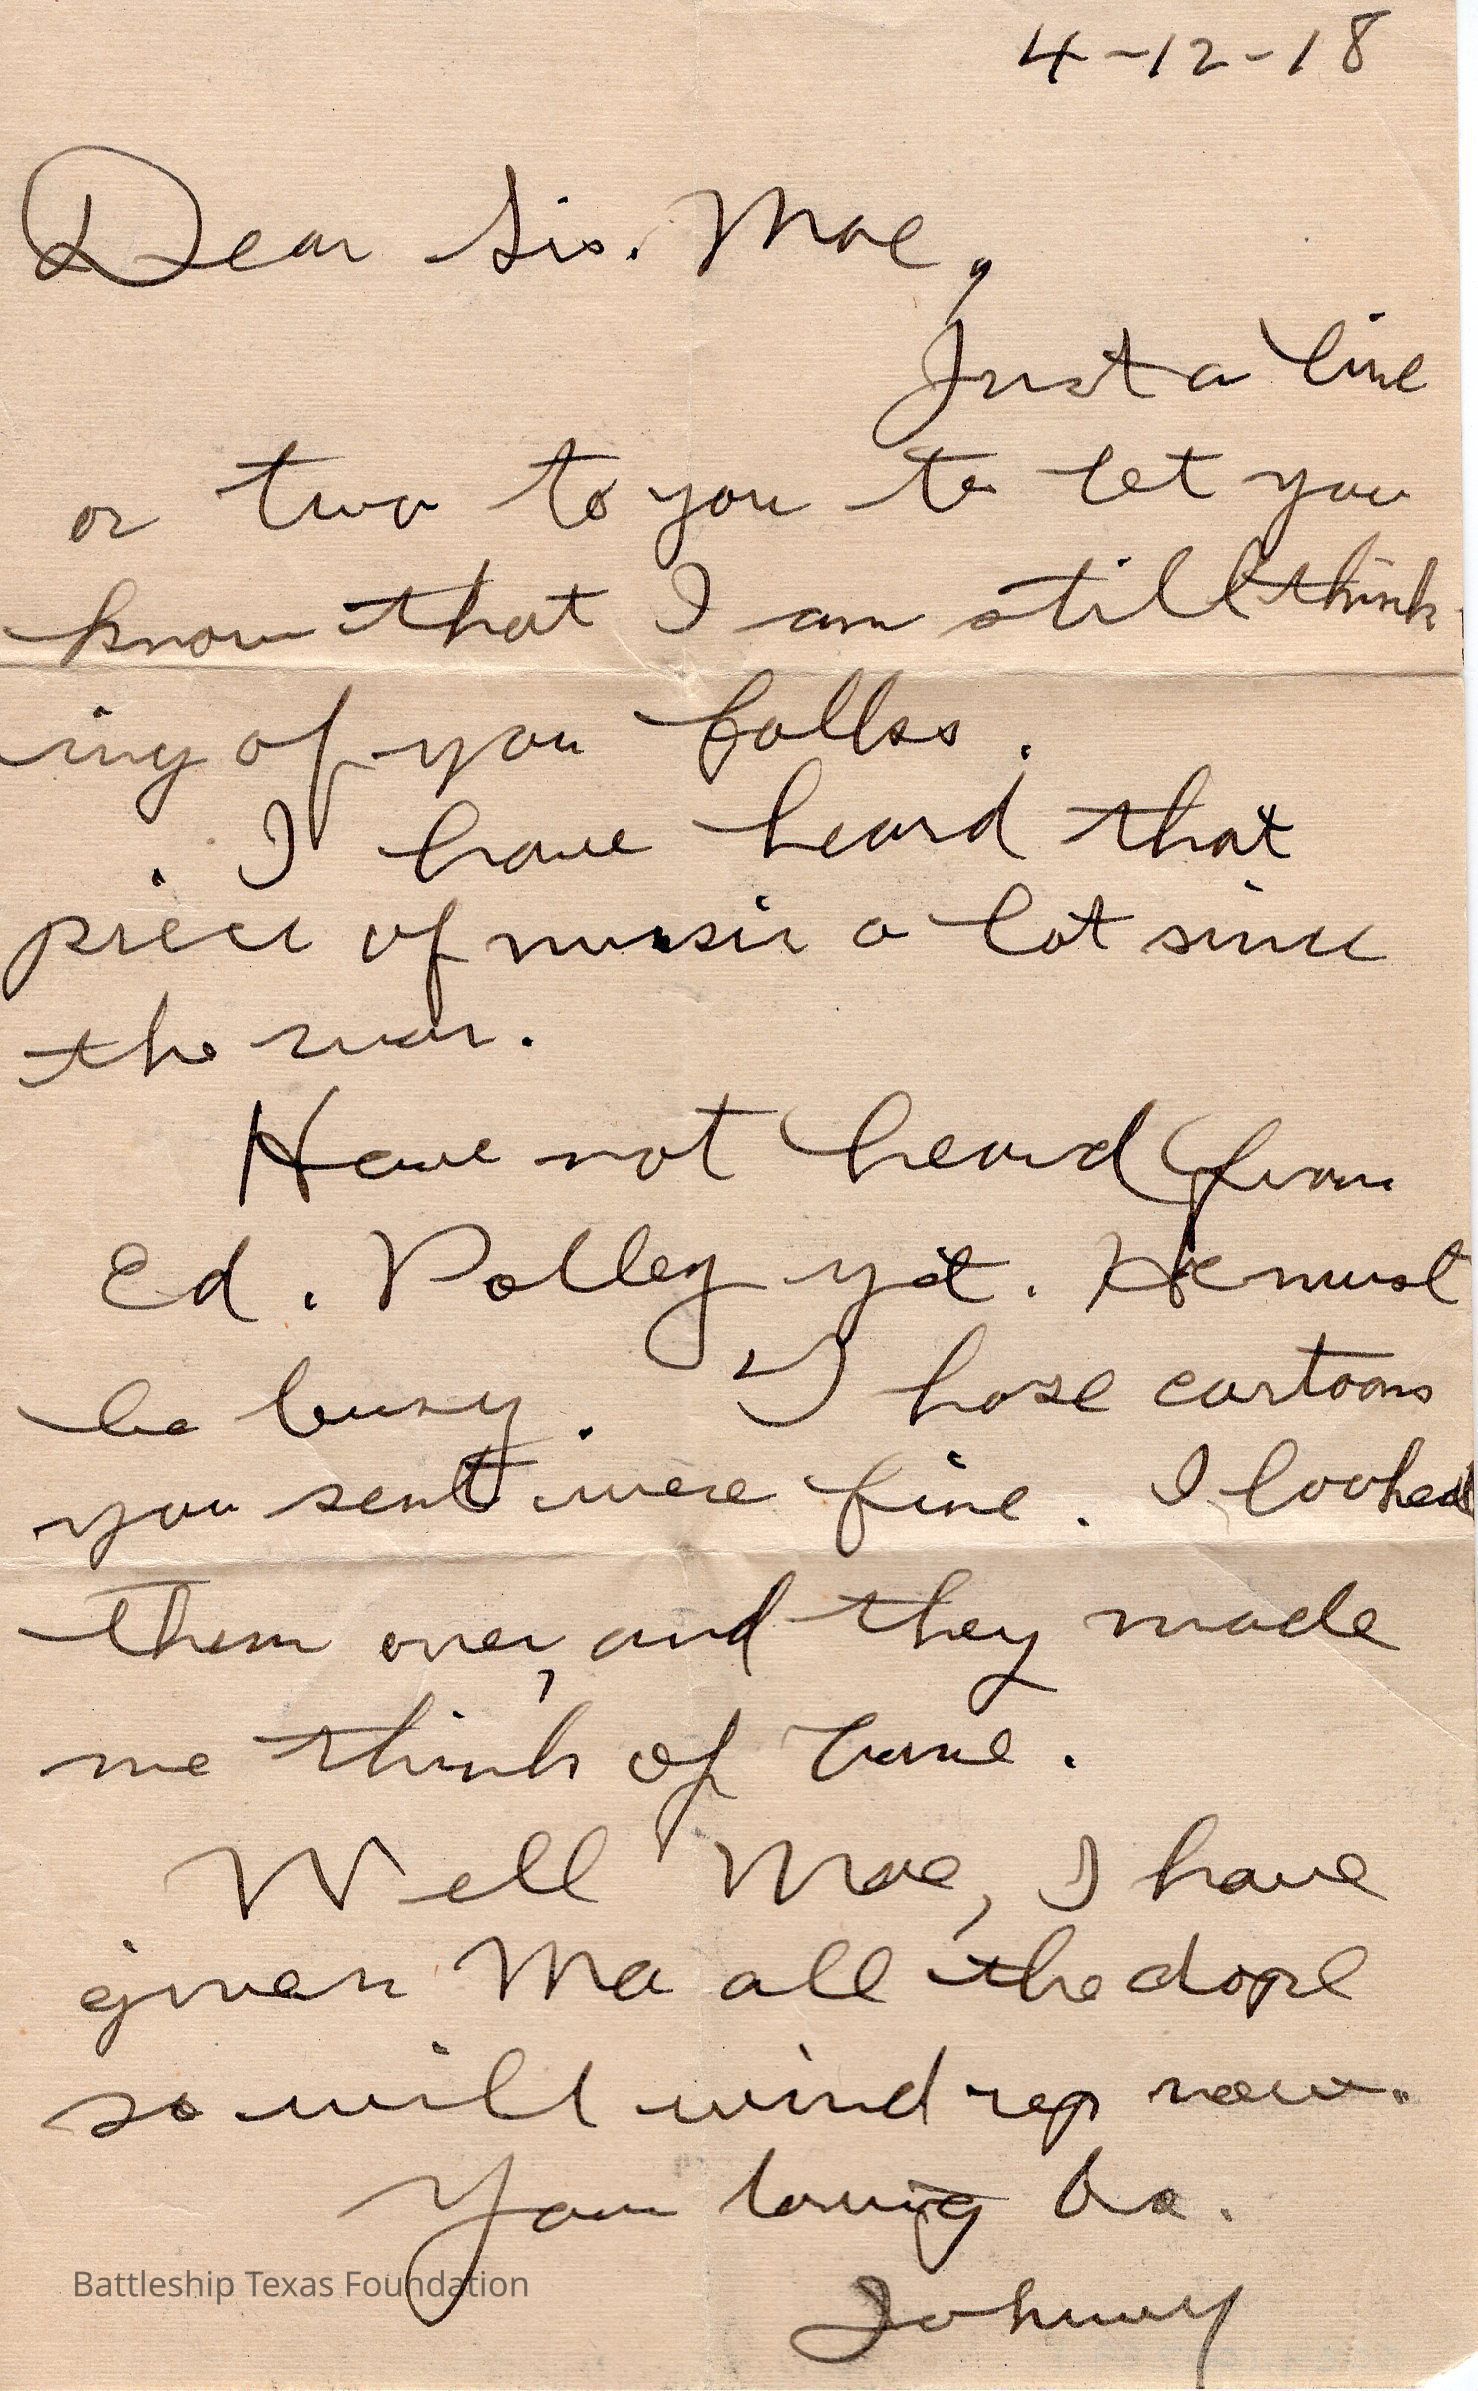 4-12-18
Dear Sis. Mae,
Just a line
or two to you to let you
know that I am still think-
ing of you folks.
I have heard that
piece of music a lot since
the war.
Have not heard from
Ed. Polley yet. He must
be busy. Those cartoons
you sent were fine. I looked
them over, and they made
me think of
Well Mae, I have
given Ma all the dope
so will wind up now.
Your loving bro.
Johnny
Battleship Texas Foundation